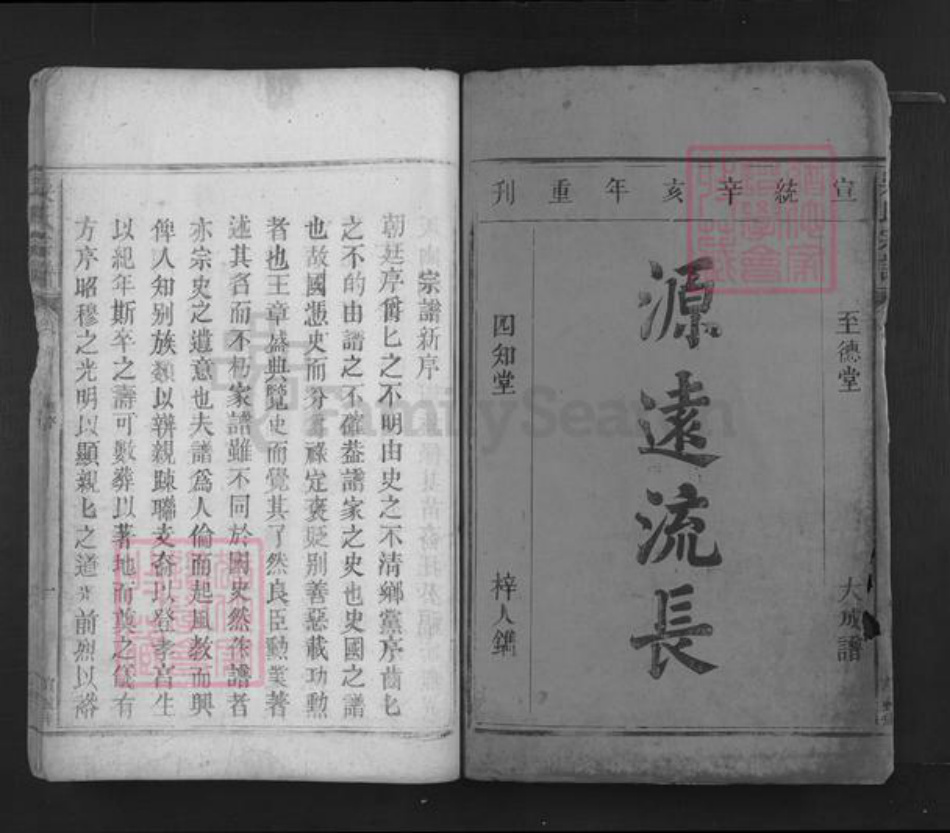 宣統辛亥年重刊
至德堂
大成譜
源遠流長
四知堂
梓人鐫
宗譜新序
朝廷序爵匕之不明由史之不清鄉黨序齒匕
之不的由譜之不確葢譜家之史也史國之譜
也故國憑史而分爵祿定褒貶別善惡載功勲
者也王章盛典覽史而覺其了然良臣勳業著
述其名而不朽家譜雖不同於國史然作譜者
亦宗史之遺意也夫譜爲人倫而起風教而興
俾人知别族類以辨親踈聯支裔以登孝
生
以紀年斯卒之壽可數葬以著地而奠之儀有
方序昭穆之光明以顯親匕之道
前烈以裕
FamilySearch